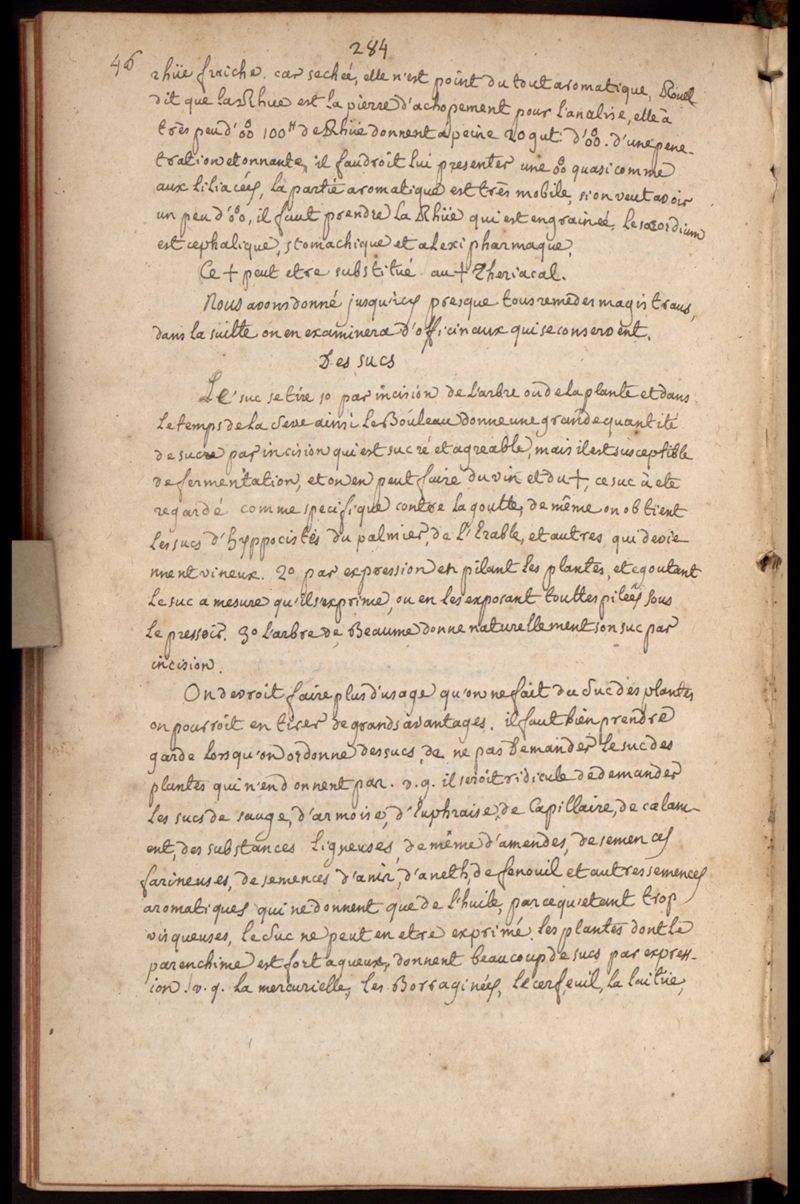 284
46
rhüe fraiche. car sechée, elle n'est point du tout aromatique, Rouel
dit que la Rhüe est la pierre d'achopement pour l'analise, elle à
très peu d'oo 100 ℔ de Rhüe donnent a peine 20 gut: d'oo. d'une pene-
tration etonnante, il faudroit lui presenter une oo quasi comme
aux liliacées, la partie aromatique est très mobile, si on veut avoir
un peu d'oo, il faut prendre la Rhüe qui est engrainée, le scordium
est cephalique, stomachique et alexipharmaque,
Ce + peut etre substitué au + Theriacal.
Nous avons donné jusqu'icy presque tous remèdes magistraus,
dans la suitte on en examinera d'officinaux qui se conservent.
Des sucs
Le suc se tire 1o par incision de l'arbre ou de la plante et dans
le temps de la seve ainsi le Bouleau donne une grande quantité
de sucre par incision qui est sucré et agreable, mais il est susceptible
de fermentation, et on en peut faire du vin et du +, ce suc à eté
regardé comme specifique contre la goutte, de même on obtient
les sucs d'hyppocistis du palmier, de l'Erable, et autres qui devie-
nnent vineux. 2o par expression en pilant les plantes, et egoutant
le suc a mesure qu'il s'exprime, ou en les exposant touttes pileés sous
le pressoir. 3o l'arbre de Beaume donne naturellement son suc par
incision.
On devroit faire plus d'usage qu'on ne fait du suc des plantes
on pourroit en tirer de grands avantages. il faut bien prendre
garde lorsqu'on ordonne des sucs, de ne pas demander le suc des
plantes qui n'en donnent par. v.g. il seroit ridicule de demander
les sucs de sauge, d'armoise, d'Euphraise, de Capillaire, de calam-
ent, des substances ligneuses de même d'amendes, de semences
farineuses, de semences d'anir, d'aneth, de fenouil et autres semences
aromatiques qui ne donnent que de l'huile, parcequ'etant trop
visqueuses, le suc ne peut en etre exprimé. les plantes dont le
parenchime est fort aqueux, donnent beaucoup de sucs par express-
ion. v.g. la mercurielle, les Borraginées, le cerfeuil, la laitüe,